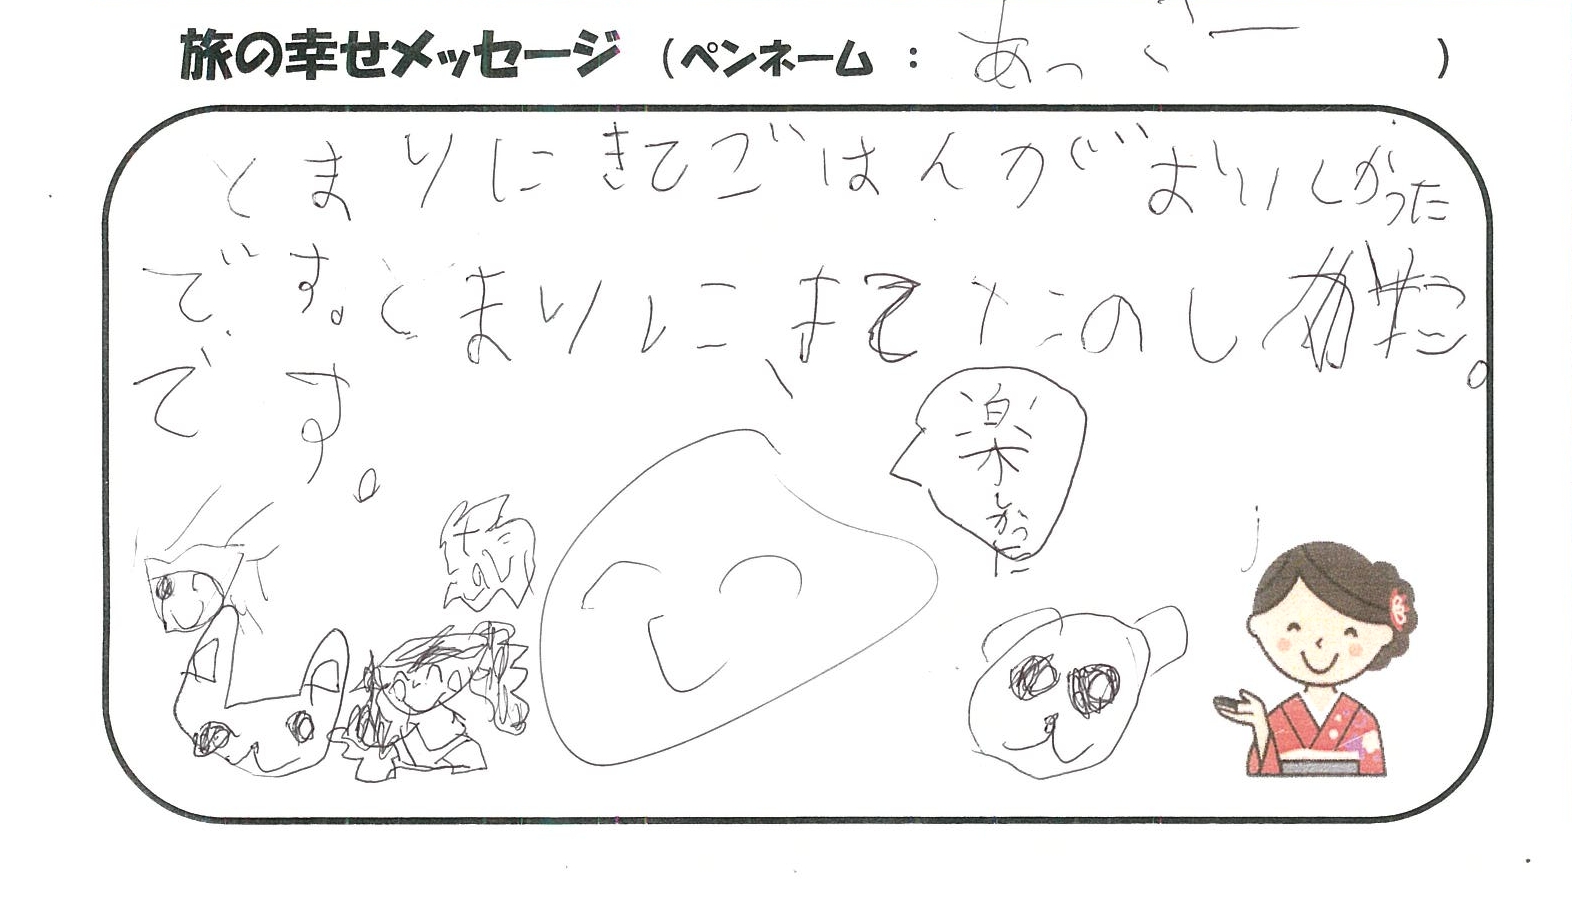 旅の幸せメッセージ（ペンネーム：あっさー）
とまりにきてごはんがおいしかった
です。とまりにきてたのしかた。
です。
楽しかった